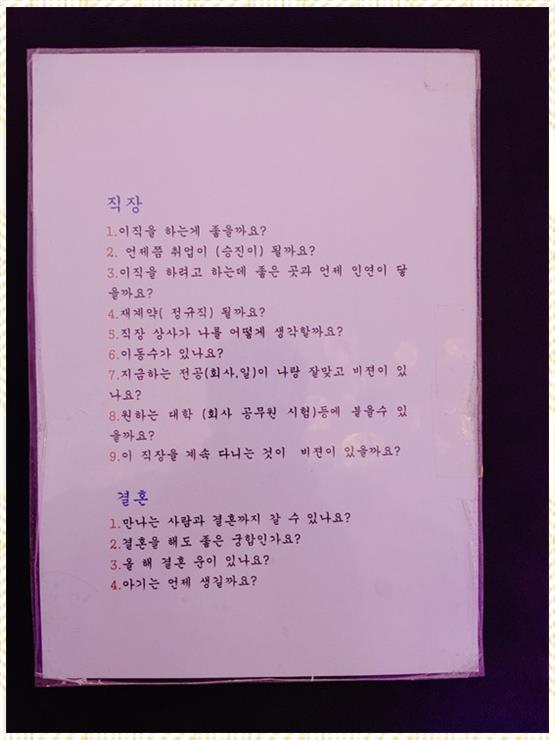 직장
1.이직을 하는게 좋을까요?
2. 언제쯤 취업이 (승진이) 될까요?
3.이직을 하려고 하는데 좋은 곳과 언제 인연이 닿
을까요?
4.재계약( 정규직) 될까요?
5.직장 상사가 나를 어떻게 생각할까요?
6.이동수가 있나요?
7.지금하는 전공(회사,일)이 나랑 잘맞고 비젼이 있
나요?
8.원하는 대학 (회사 공무원 시험)등에 붙을수 있
을까요?
9.이 직장을 계속 다니는 것이 비젼이 있을까요?
결혼
1.만나는 사람과 결혼까지 갈 수 있나요?
2.결혼을 해도 좋은 궁합인가요?
3.올 해 결혼 운이 있나요?
4.아기는 언제 생길까요?